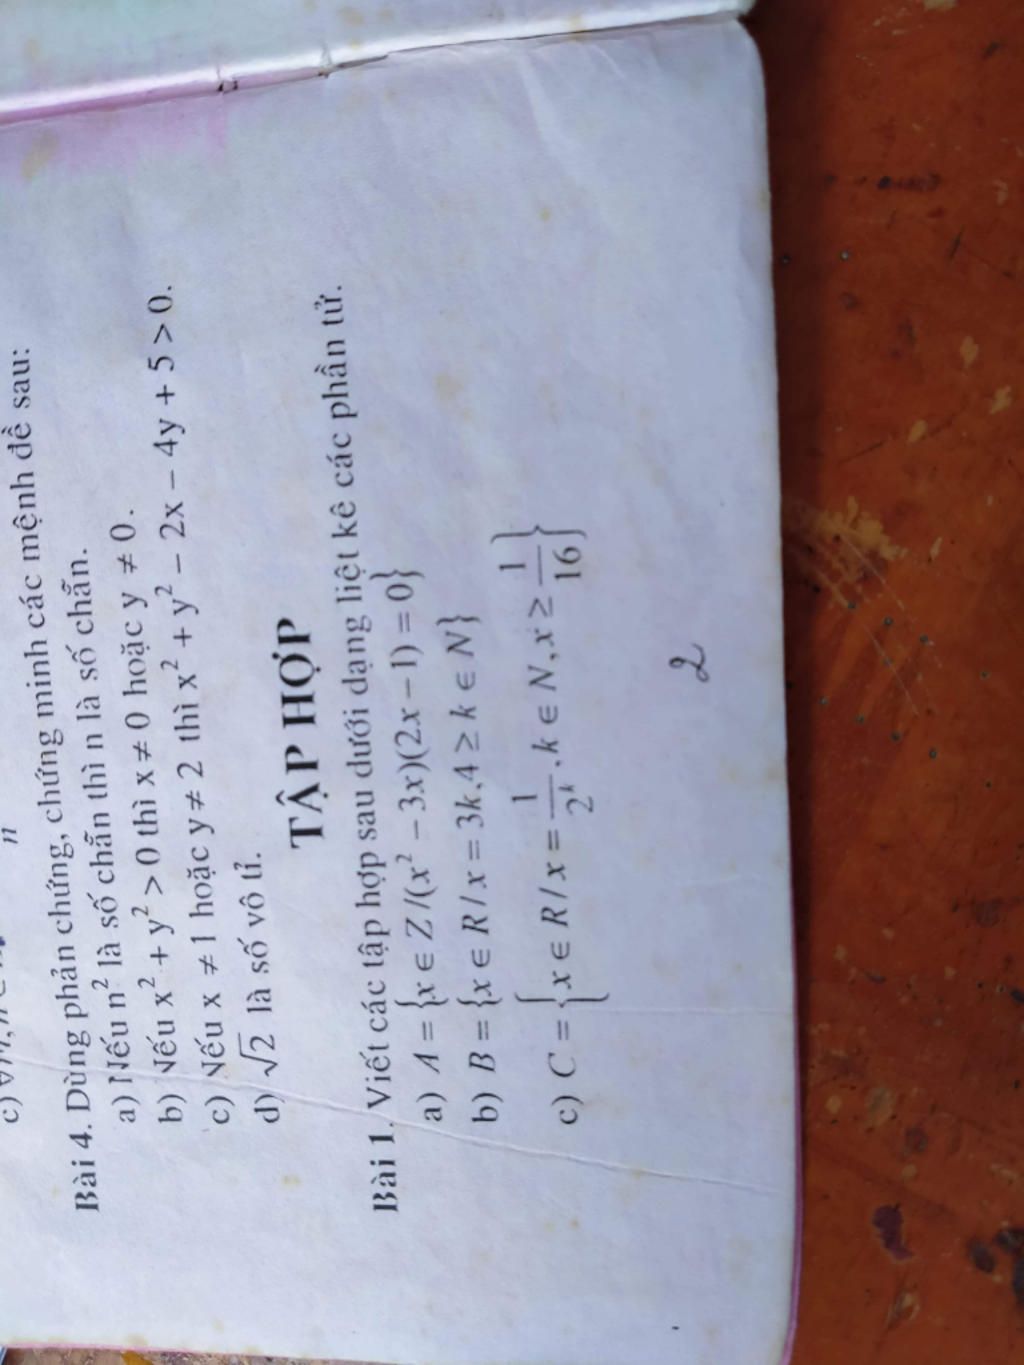 n
c)
Bài 4. Dùng phản chứng, chứng minh các mệnh đề sau:
a) Nếu n² là số chẵn thì n là số chẵn.
b) Nếu x² + y² > 0 thì x ≠ 0 hoặc y ≠ 0.
c) Nếu x ≠ 1 hoặc y ≠ 2 thì x² + y² – 2x – 4y + 5 > 0.
d) √2 là số vô tỉ.
TẬP HỢP
Bài 1. Viết các tập hợp sau dưới dạng liệt kê các phần tử.
a) A = {x ∈ Z/(x² – 3x)(2x – 1) = 0}
b) B = {x ∈ R/x = 3k, 4 ≥ k ∈ N}
c) C = {x ∈ R/x = 1/2ᵏ, k ∈ N, x ≥ 1/16}
2